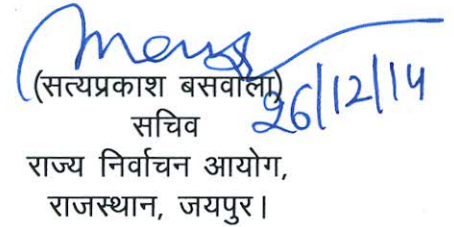 (सत्यप्रकाश बसवाला)
26/12/14
सचिव
राज्य निर्वाचन आयोग,
राजस्थान, जयपुर।